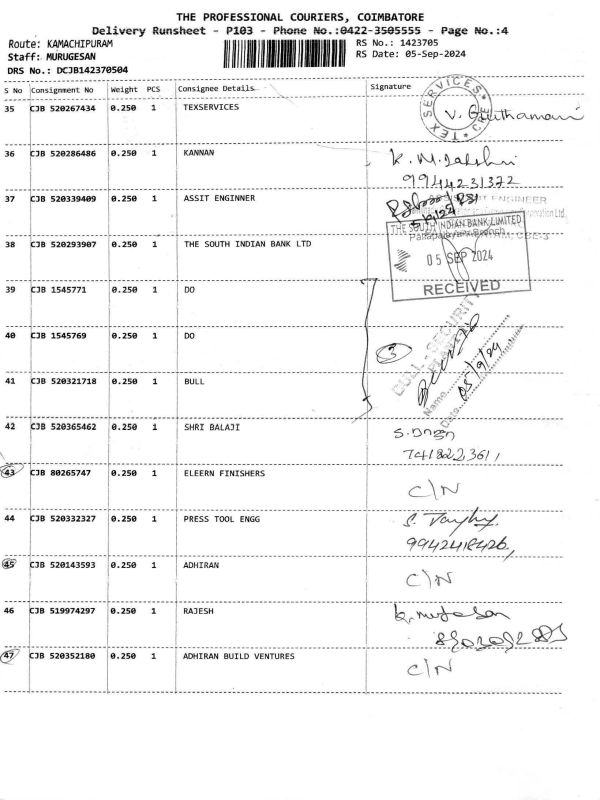 THE PROFESSIONAL COURIERS, COIMBATORE
Delivery Runsheet - P103 - Phone No.:0422-3505555 - Page No.:4
Route: KAMACHIPURAM RS No.: 1423705
Staff: MURUGESAN RS Date: 05-Sep-2024
DRS No.: DCJB142370504
S No Consignment No Weight PCS Consignee Details Signature
35 CJB 520267434 0.250 1 TEXSERVICES
TEX SERVICES CBE
36 CJB 520286486 0.250 1 KANNAN
9944231372
37 CJB 520339409 0.250 1 ASSIT ENGINNER
ENGINEER
5/9/24
Corporation Ltd,
38 CJB 520293907 0.250 1 THE SOUTH INDIAN BANK LTD
THE SOUTH INDIAN BANK LIMITED
Branch
05 SEP 2024
RECEIVED
39 CJB 1545771 0.250 1 DO
40 CJB 1545769 0.250 1 DO
3
BULL - SECURITY
Name
Date 05/9/24
41 CJB 520321718 0.250 1 BULL
42 CJB 520365462 0.250 1 SHRI BALAJI
43 CJB 80265747 0.250 1 ELEERN FINISHERS
C/N
44 CJB 520332327 0.250 1 PRESS TOOL ENGG
9942418426,
45 CJB 520143593 0.250 1 ADHIRAN
C/N
46 CJB 519974297 0.250 1 RAJESH
47 CJB 520352180 0.250 1 ADHIRAN BUILD VENTURES
C/N